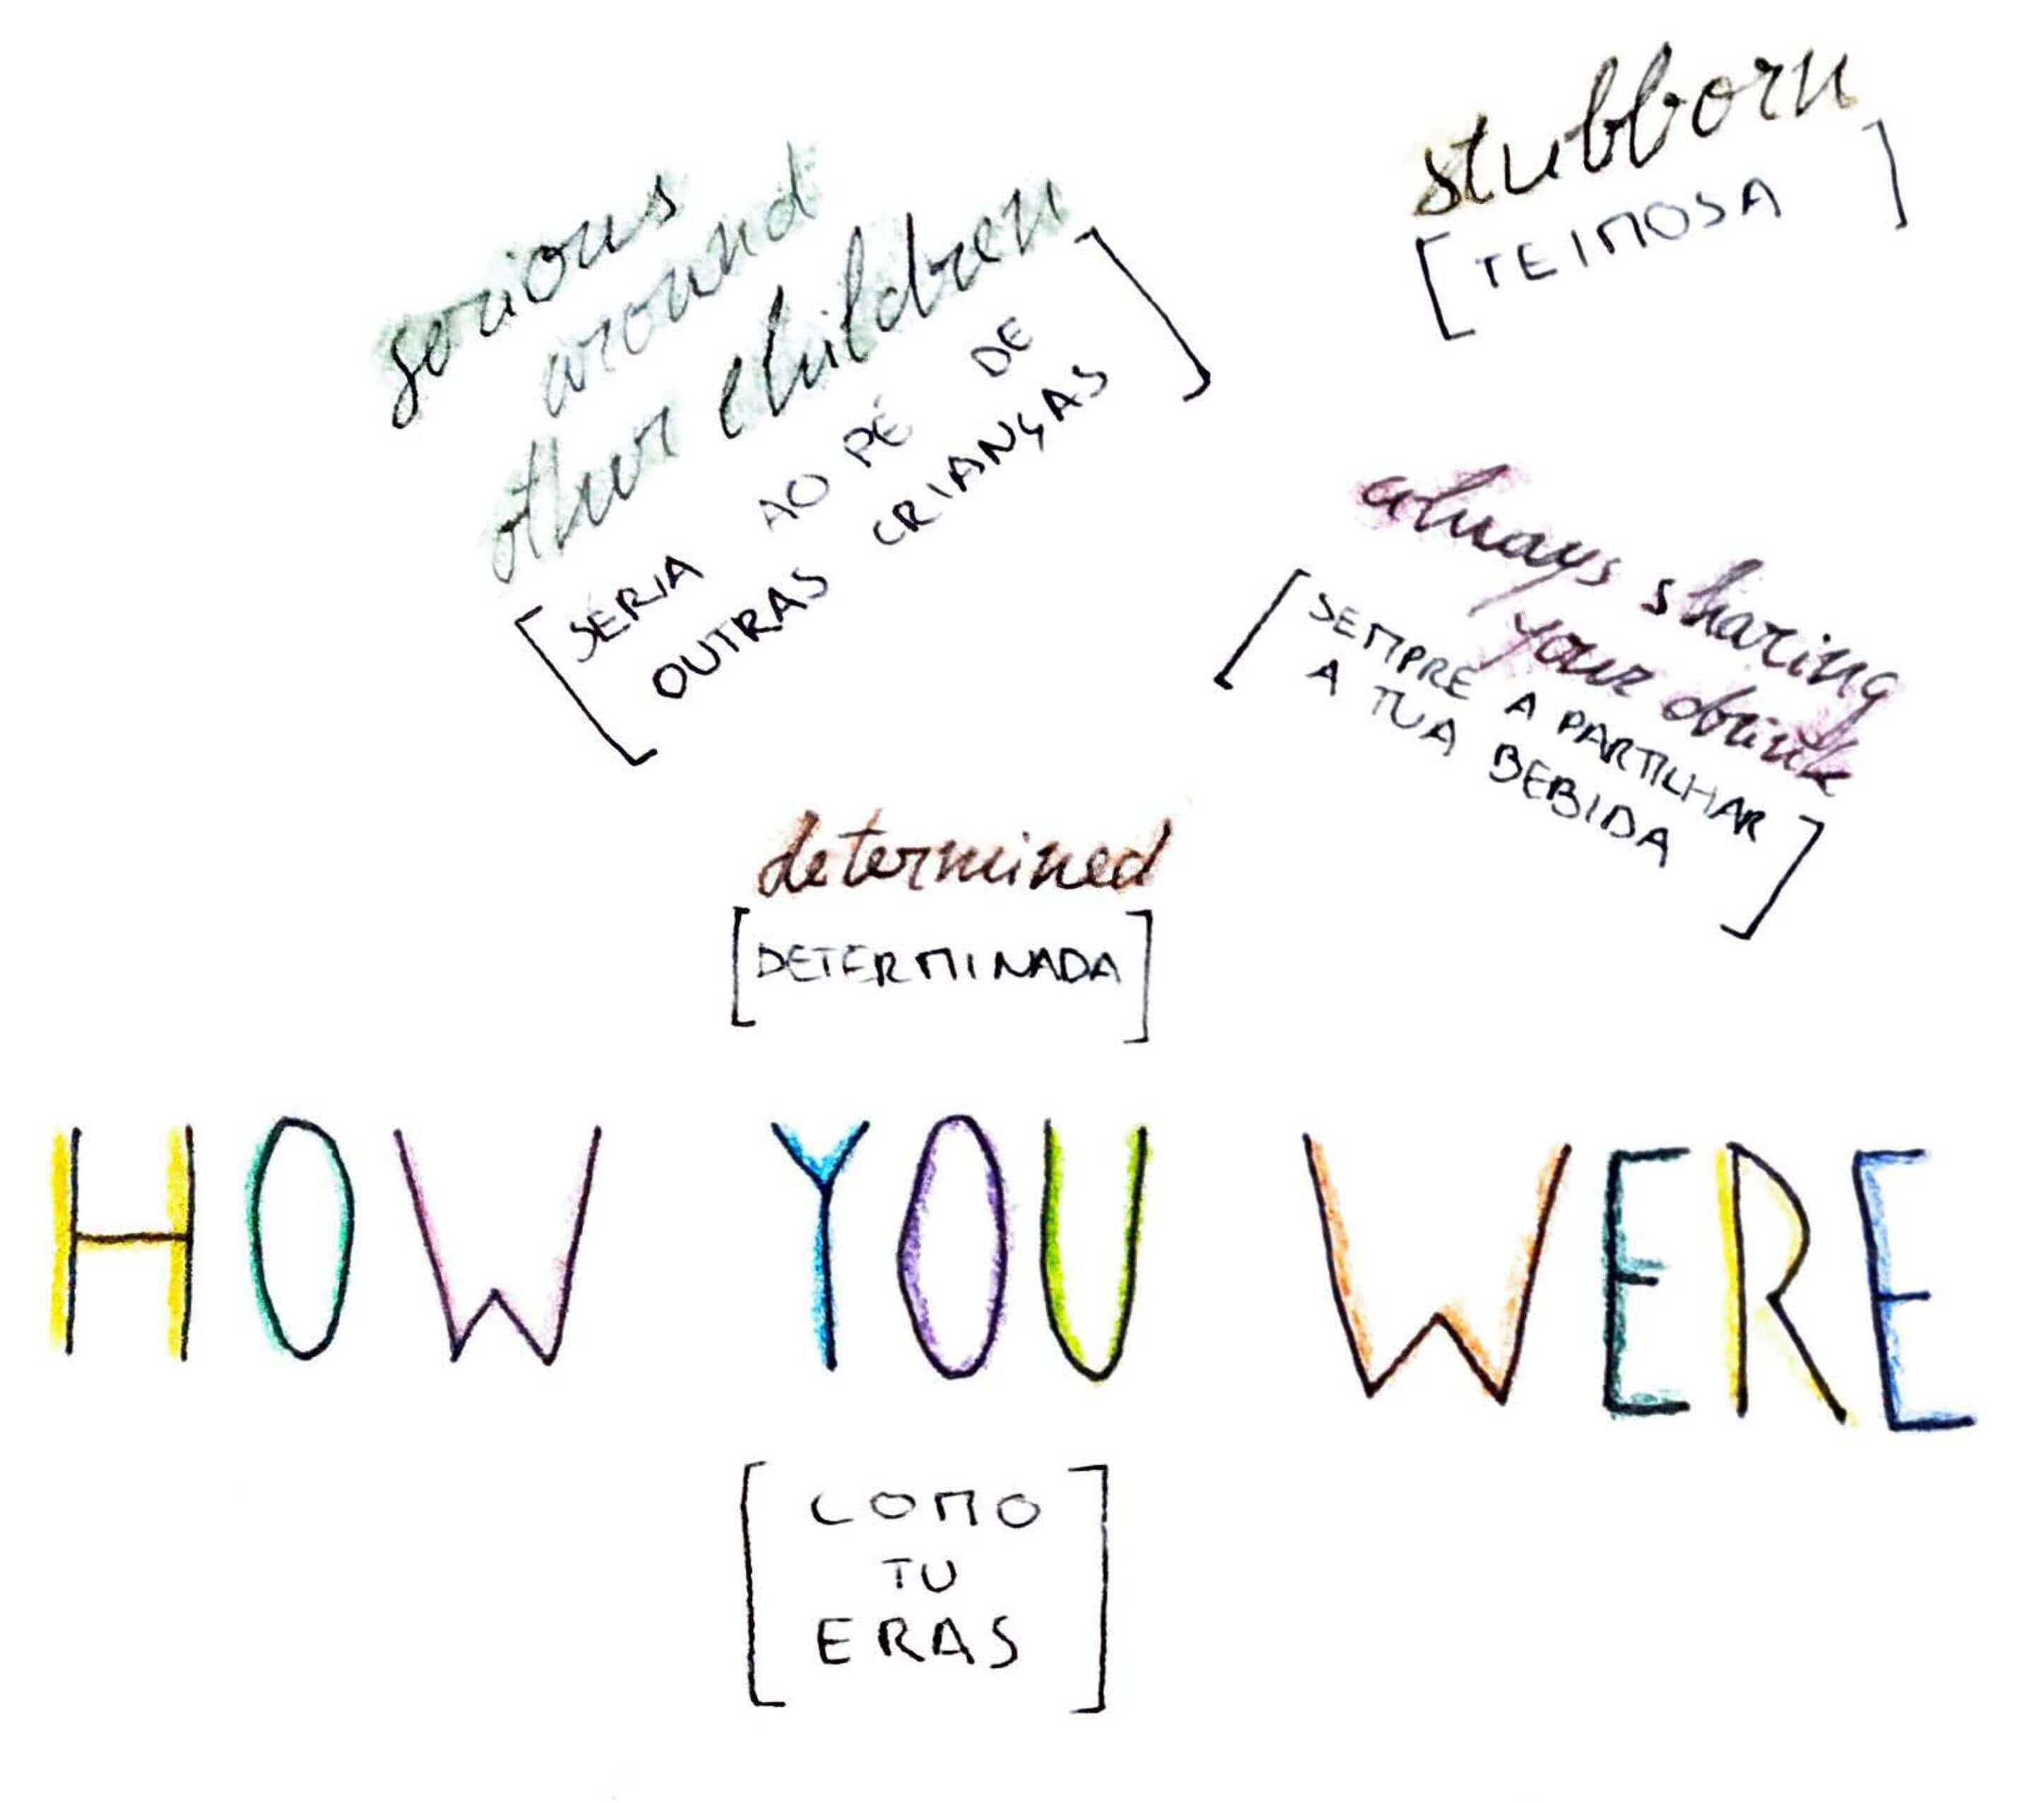 stubborn
[TEIMOSA]
serious
around
other children
[SÉRIA AO PÉ DE
OUTRAS CRIANÇAS]
always sharing
your drink
[SEMPRE A PARTILHAR
A TUA BEBIDA]
determined
[DETERMINADA]
HOW YOU WERE
[COMO
TU
ERAS]